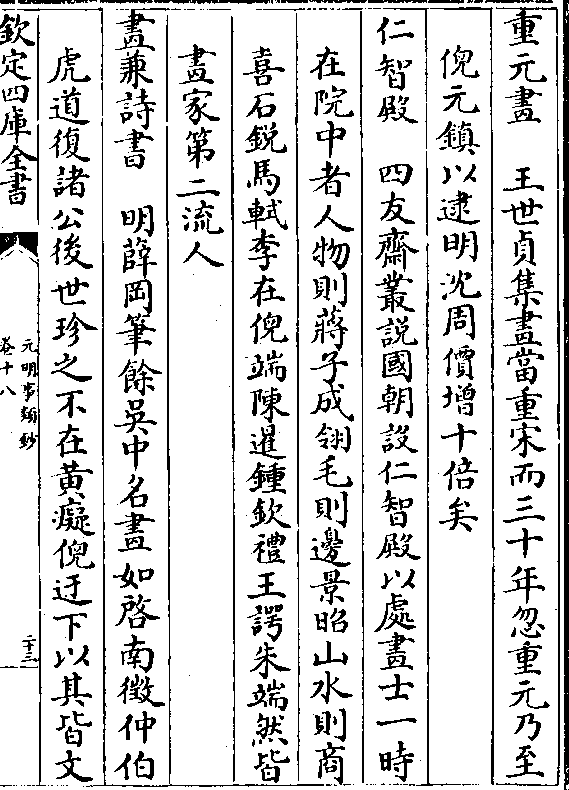 重元畫　王世貞集畫當重宋而三十年忽重元乃至
倪元鎮以逮明沈周價增十倍矣
仁智殿　四友齋叢説國朝設仁智殿以處畫士一時
在院中者人物則蔣子成翎毛則邊景昭山水則商
喜石鋭馬軾李在倪端陳暹鍾欽禮王諤朱端然皆
畫家第二流人
畫兼詩書　明薛岡筆餘吳中名畫如啓南徵仲伯
虎道復諸公後世珍之不在黄癡倪迂下以其皆文
欽定四庫全書
元明事類鈔
卷十八
二十三